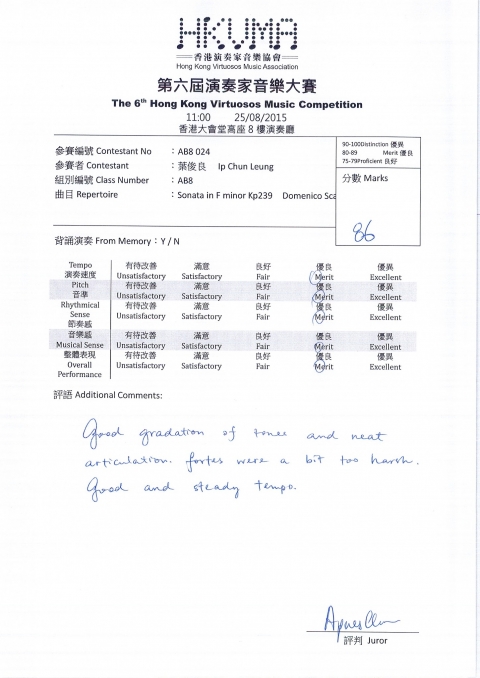 HKVMA
香港演奏家音樂協會
Hong Kong Virtuosos Music Association
第六屆演奏家音樂大賽
The 6th Hong Kong Virtuosos Music Competition
11:00 25/08/2015
香港大會堂高座 8 樓演奏廳
參賽編號 Contestant No : AB8 024
參賽者 Contestant : 葉俊良 Ip Chun Leung
組別編號 Class Number : AB8
曲目 Repertoire : Sonata in F minor Kp239 Domenico Sca
90-100Distinction 優異
80-89 Merit 優良
75-79Proficient 良好
分數 Marks
86
背誦演奏 From Memory : Y / N
Tempo 有待改善 滿意 良好 優良 優異
演奏速度 Unsatisfactory Satisfactory Fair Merit Excellent
Pitch 有待改善 滿意 良好 優良 優異
音準 Unsatisfactory Satisfactory Fair Merit Excellent
Rhythmical 有待改善 滿意 良好 優良 優異
Sense Unsatisfactory Satisfactory Fair Merit Excellent
節奏感
音樂感 有待改善 滿意 良好 優良 優異
Musical Sense Unsatisfactory Satisfactory Fair Merit Excellent
整體表現 有待改善 滿意 良好 優良 優異
Overall Unsatisfactory Satisfactory Fair Merit Excellent
Performance
評語 Additional Comments:
Good gradation of tones and neat
articulation. fortes were a bit too harsh.
Good and steady tempo.
評判 Juror